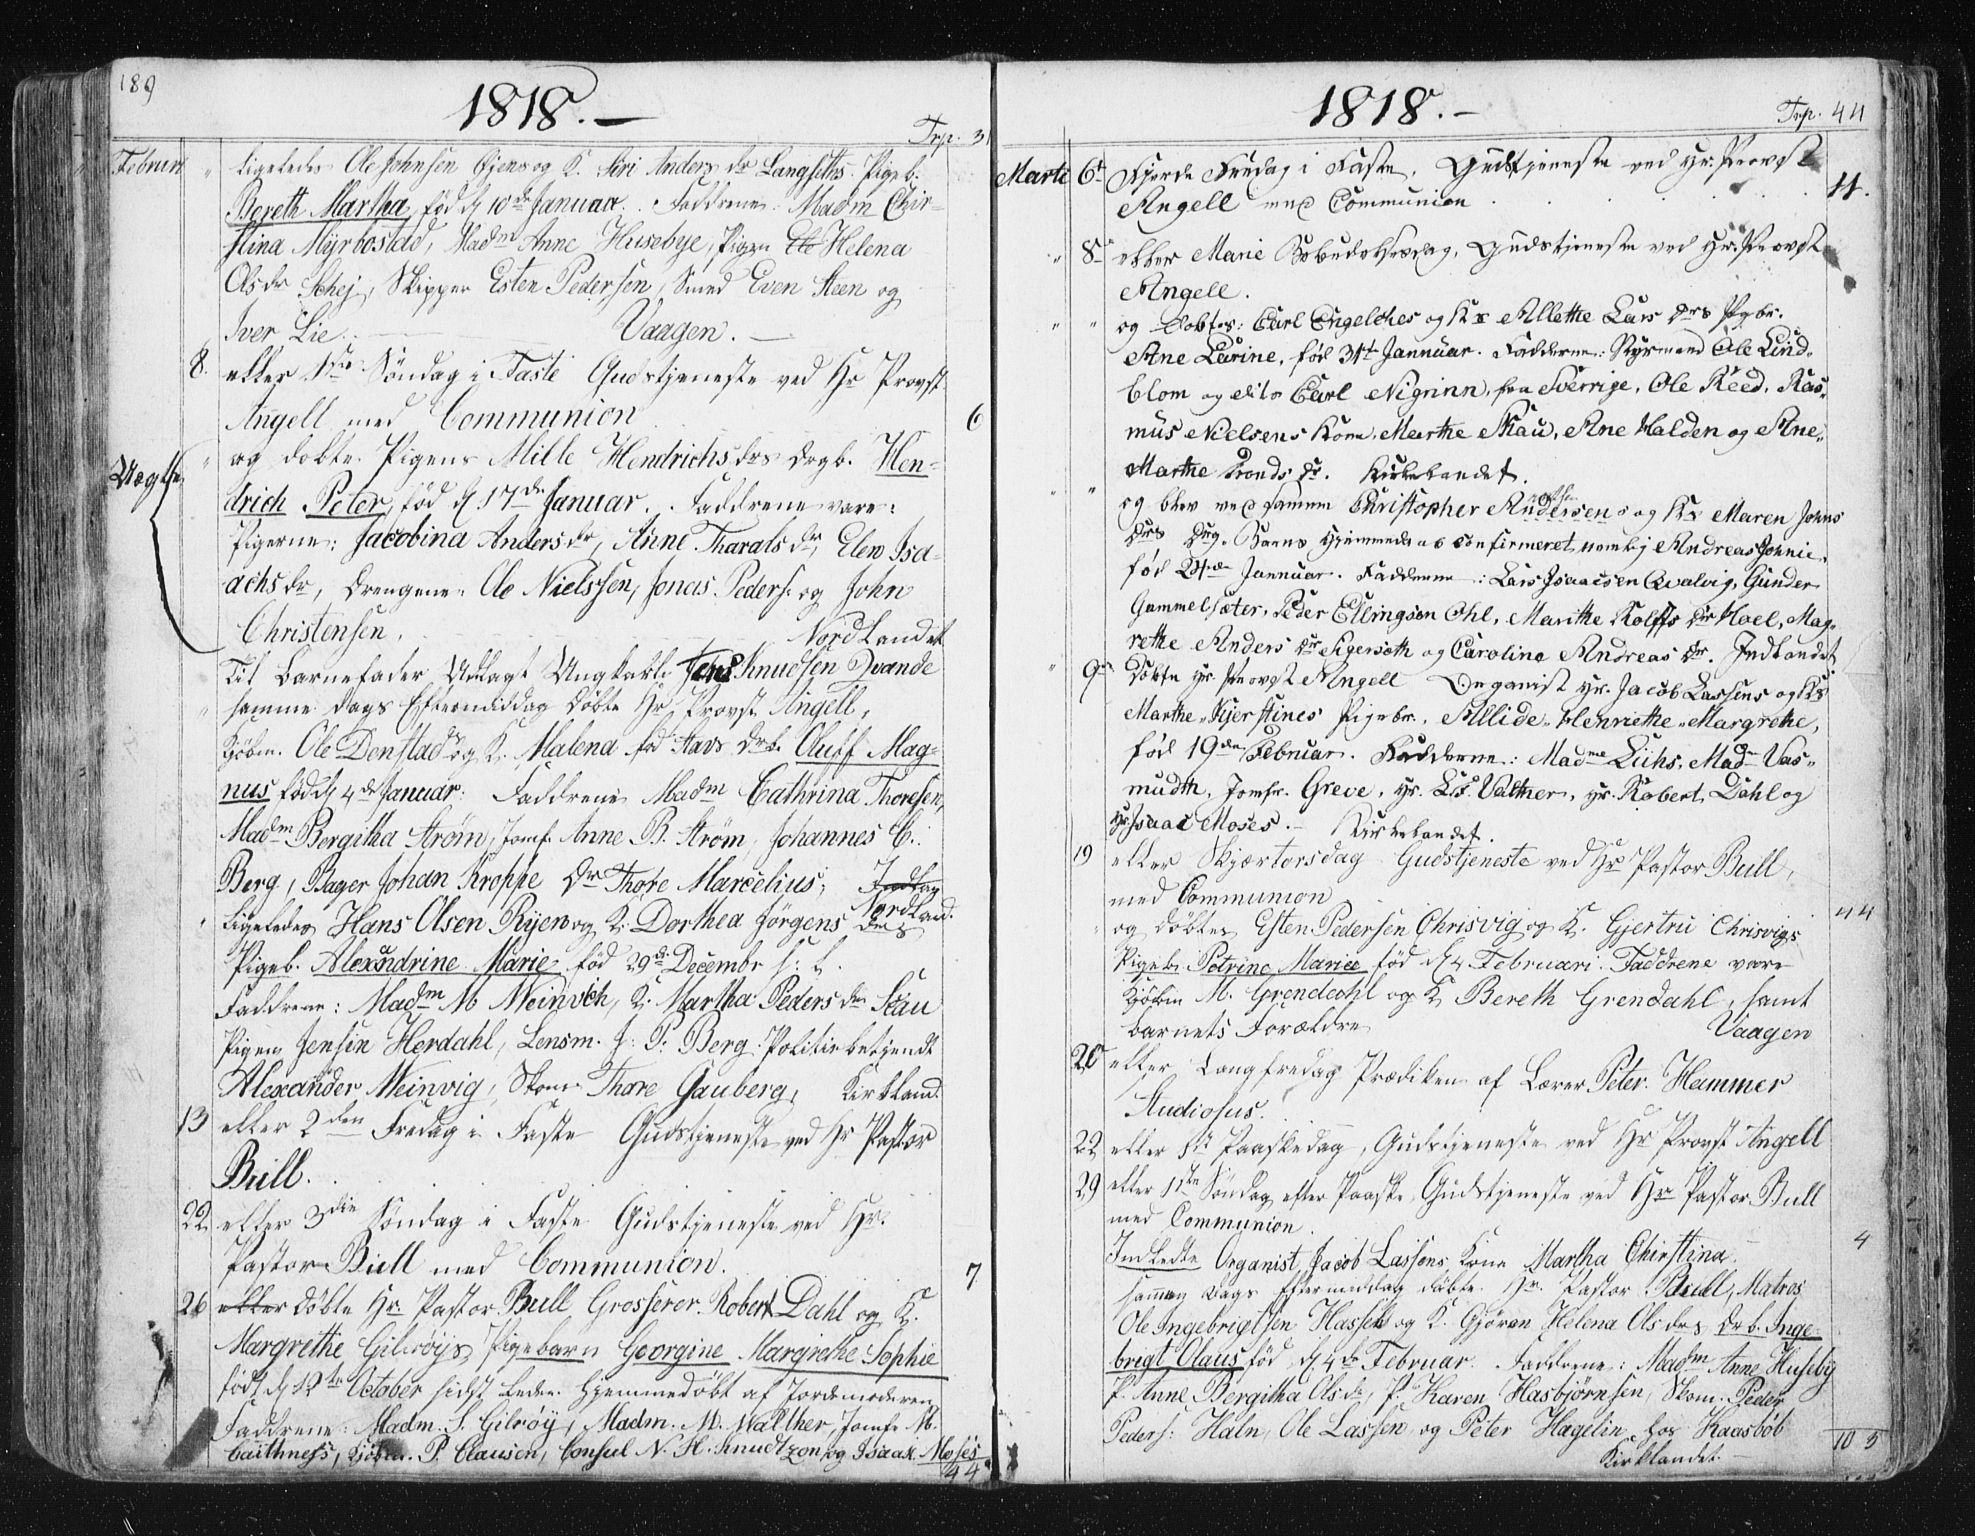 189
1818.—
Trp. 31
Februar " Ligeledes Ole Johnsen Øjens og K. Siri Anders dr Langseths Pigeb.
Bereth Martha, fød d 10de Januar. Faddrene: Madm Chir-
stina Myrbostad, Madm Anne Husebye, Pigen Helena
Olsdr Schej, Skipper Esten Pedersen, Smed Even Steen og
Iver Lie. — Vaagen. —
8. eller 1ste Søndag i Faste Gudstjeneste ved Hr Provst
Angell med Communion 6
Uægte " og døbte Pigens Mille Hendrichs drs drgb. Hen-
drich Peter, fød d 17de Januar. Faddrene vare:
Pigerne: Jacobina Anders dr, Anne Tharals dr, Elen Isa-
achs dr, Drengene: Ole Nielssen, Jonas Peders. og John
Christensen. Nordlandet
Til Barnefader Udlagt Ungkarl Jens Knudsen Qvande
" samme Dags Eftermiddag døbte Hr Provst Angell,
Kjøbm. Ole Denstad og K. Malena fød Stavs Drb. Oluff Mag-
nus fød d 4de Januar: Faddrene Madm Cathrina Thoresen,
Madm Bergitha Strøm, Jomf. Anne B. Strøm, Johannes C.
Berg, Bager Johan Kroppe Dr Thore Marcelius,
Nordland.
" Ligeledes Hans Olsen Ryen og K. Dorthea Jørgens drs
Pigeb. Alexandrine Marie fød 29de Decembr s: l.
Faddrene: Madm M Meinvich, K. Martha Peders dr Skau
Pigen Jensin Herdahl, Lensm. J: P: Berg. Politiebetjendt
Alexander Meinvig, Skom. Thore Gauberg, Kirkland.
13 eller 2den Fredag i Faste Gudstjeneste ved Hr Pastor
Bull.
22 eller 3die Søndag i Faste Gudstjeneste ved Hr.
Pastor Bull med Communion. 7
26 eller døbte Hr. Pastor Bull Grosserer Robert Dahl og K.
Margrethe Gilroÿs Pigebarn Georgine Margrethe Sophie
født d 12te October sidst Leden hjemmedøbt af Jordemoderen
Faddrene: Madm. S. Gilroÿ, Madm. M. Walther, Jomfr M.
Caithness, Kjøbm. P. Clausen, Consul N. H. Knudtzon og Isaak Moses
44
1818.—
Trp. 44
Marti 6te Fierde Fredag i Faste. Gudstjeneste ved Hr: Provst
Angell med Communion 11.
" 8de eller Marie Bebudelsesdag, Gudstjeneste ved Hr: Provst
Angell.
" " og døbtes: Carl Engelches og Ks Allethe Lars Drs Pgbr.
Ane Laurine, fød 31te Jannuar. Fadderne: Styrmand Ole Lind-
blom og dito Carl Nigrinn, fra Sverrige, Ole Reed, Ras-
mus Nielsens Kone, Marthe Skau, Ane Halden og Ane-
Marthe Tronds Dr. Kirkelandet.
" " og blev ved samme Christopher Andersens og Ks Maren Johns
Drs Drg. Barns Hjemmedaab confirmeret nemlig Andreas Jonnie,
fød 24de Jannuar. Fadderne: Lars Isaacsen Qvalvig, Gunder
Gammelsæter, Peder Ellingsen Ohl, Marithe Rolffs Dr Hoel, Mag-
rethe Anders Dr Sigersøth og Carolina Andreas Dr. Indlandet
" 9de Døbte Hr. Provst Angell Organist Hr. Jacob Lassens og Ks
Marthe-Kjerstines Pigebr. Allide-Henriethe-Margrethe,
fød 19de Februar. Fadderne: Madme Lühs, Madm Vas-
mudth, Jomfr. Greve, Hr. Ls. Valther, Hr. Robert Dahl og
Hr. Isaac Moses. — Kirkelandet.
19 eller Skjærtorsdag Gudstjeneste ved Hr Pastor Bull,
med Communion 44
" og døbtes Esten Pedersen Chrisvig og K. Gjertru Chrisvigs
Pigeb. Petrine Maria fød d 4 Februari. Faddrene vare
Kjøbm M. Grendahl og K Bereth Grendahl, samt
Barnets Forældre Vaagen
20 eller Langfredag Prædiken af Lærer Peter Hammer
Studiosus.
22 eller 1st Paaskedag, Gudstjeneste ved Hr Provst Angell
29 eller 1ste Søndag efter Paaske, Gudstjeneste ved Hr Pastor Bull
med Communion 4
Indledte Organist Jacob Lassens Kone Martha Chirstina.
sammen Dags Eftermiddag døbte Hr. Pastor Bull, Matros
Ole Ingebrigtsen Hassels og K. Gjøren Helena Ols drs drb. Inge-
brigt Olaus fød d 4de Februar. Faddrene: Madm Anne Huseby
P. Anne Bergitha Ols dr, P. Karen Hasbjørnsen, Skom. Peder
Peders: Haln, Ole Lassen og Peter Hagelin hos Kaasbøl
Kirklandet. — 103